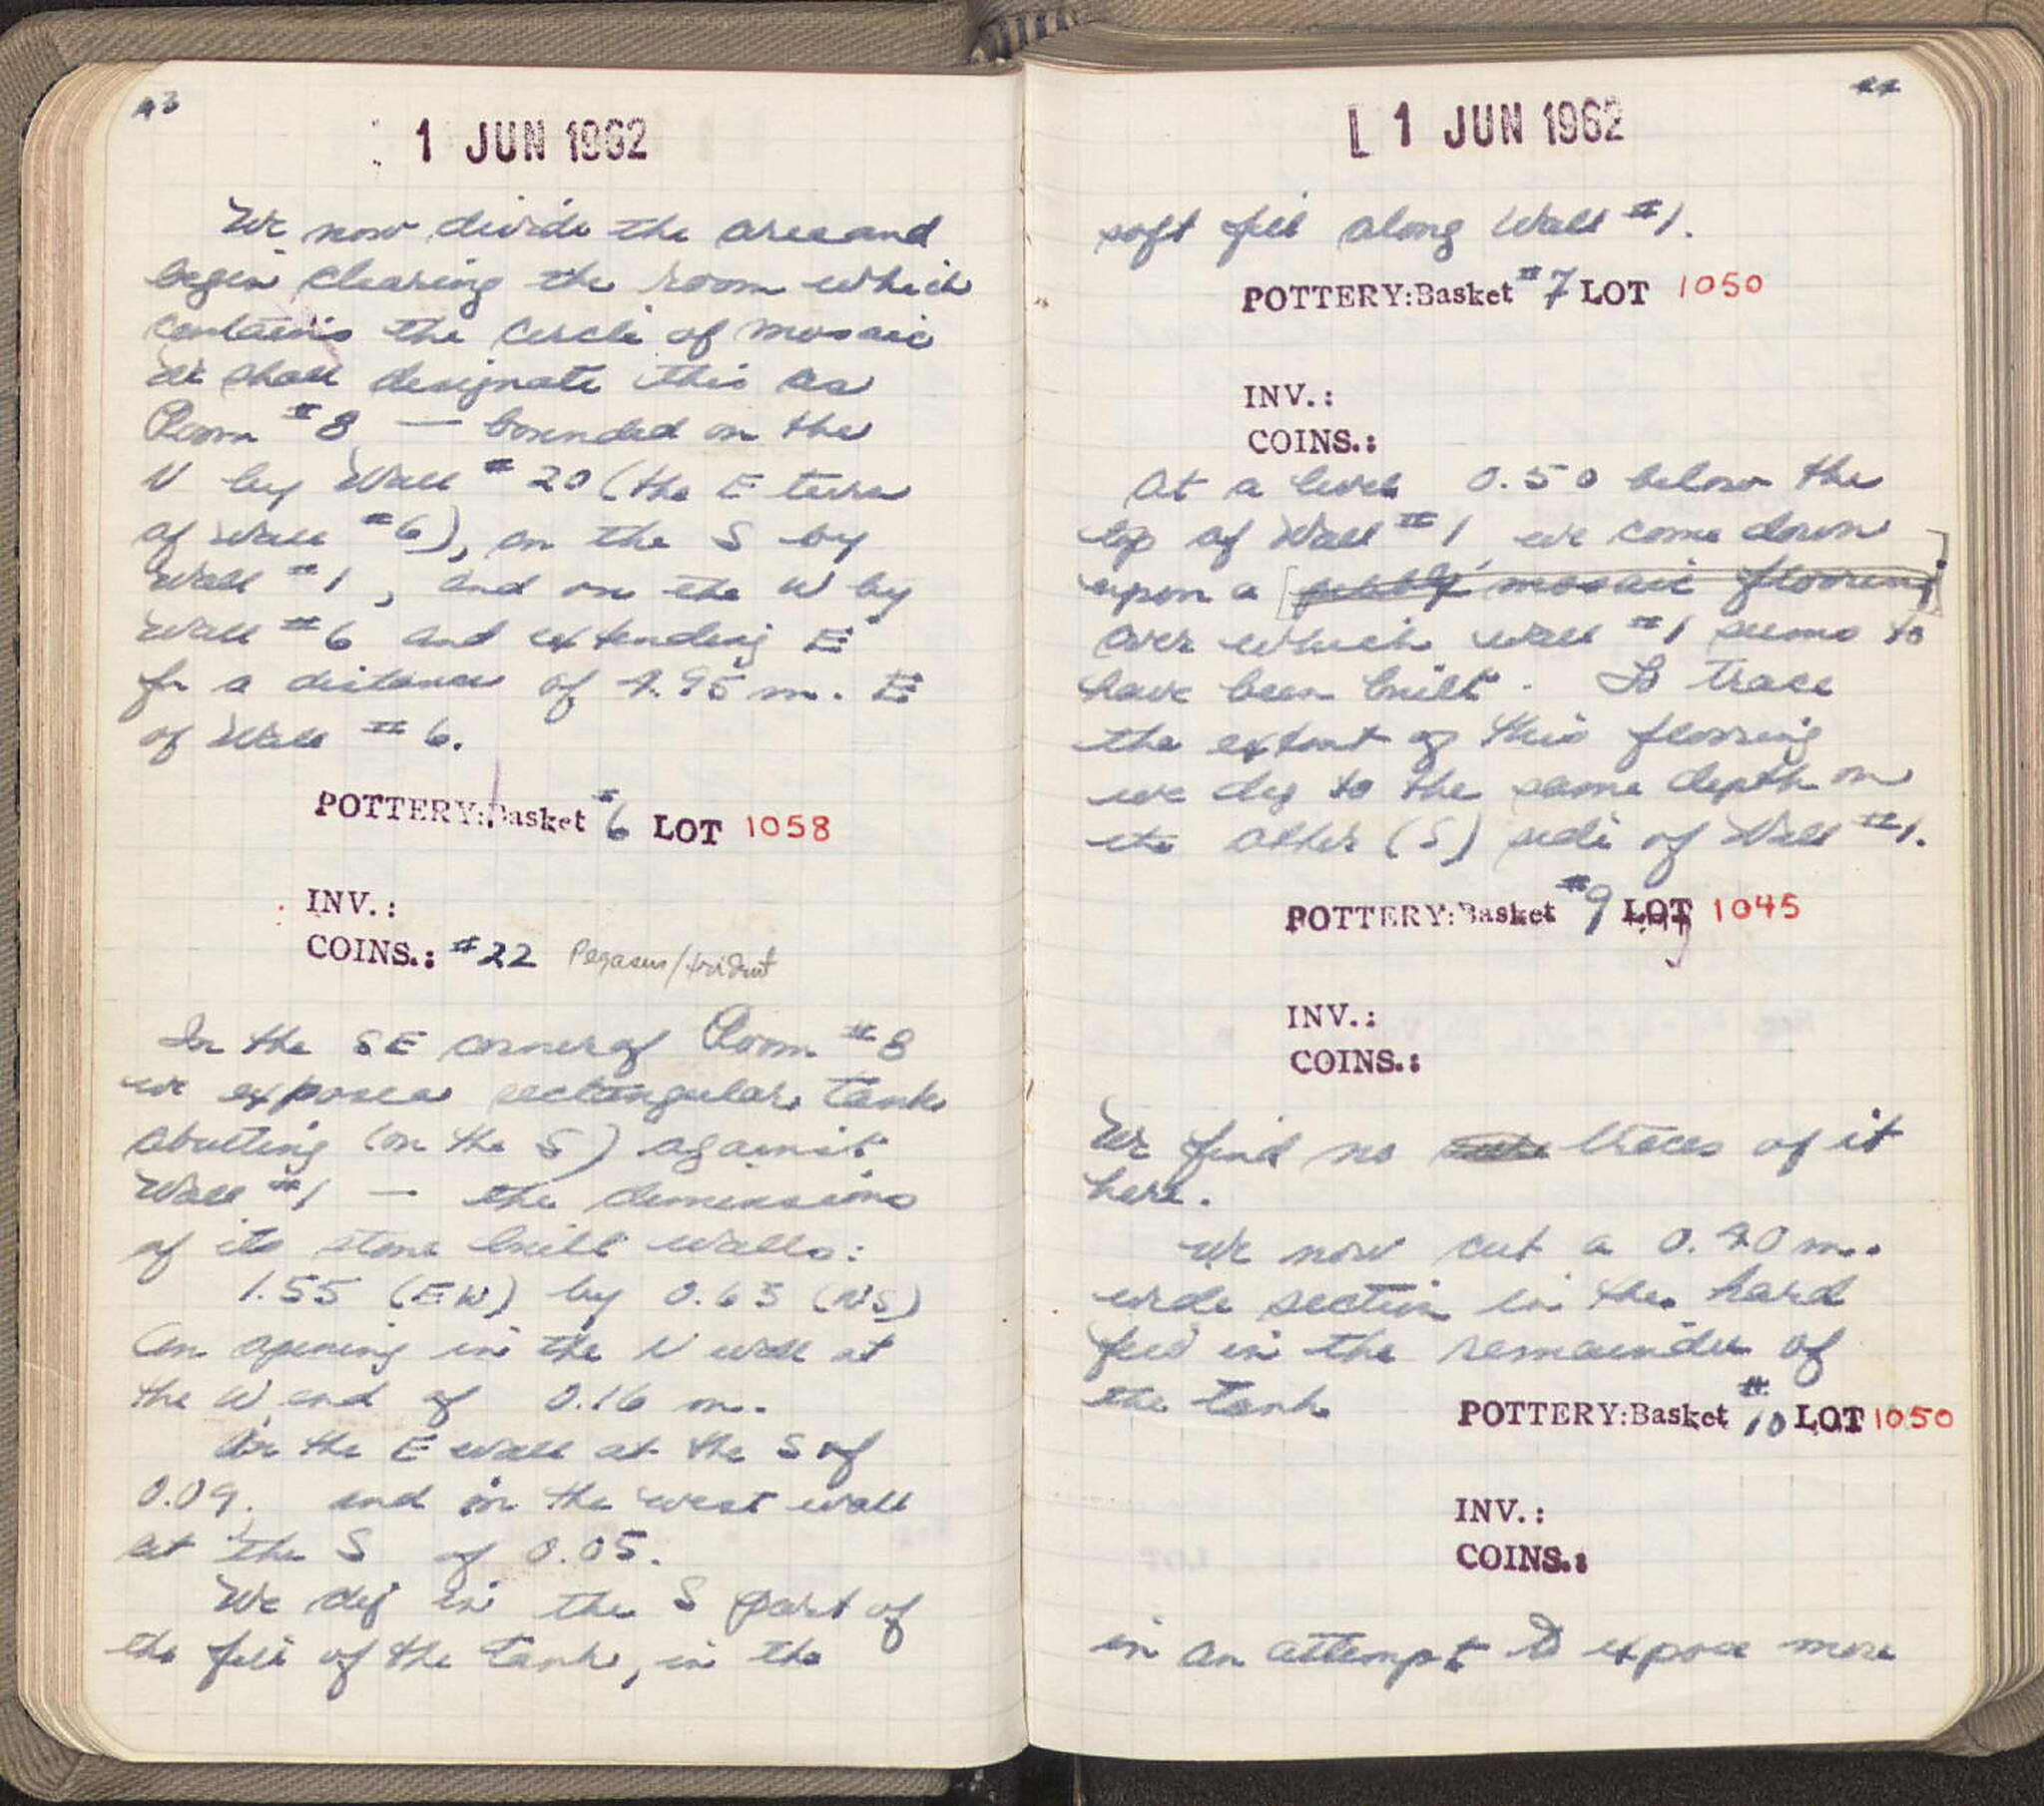 43
1 JUN 1962
We now divide the area and
begin clearing the room which
contains the circle of mosaic
We shall designate this as
Room #8 — bounded on the
N by Wall #20 (the E turn
of Wall #6), on the S by
Wall #1, and on the W by
Wall #6 and extending E
for a distance of 4.95 m. E
of Wall #6.
POTTERY: Basket #6 LOT 1058
INV.:
COINS.: #22 Pegasus/trident
In the SE corner of Room #8
we expose a rectangular tank
abutting (on the S) against
Wall #1 — the dimensions
of its stone built walls:
1.55 (EW) by 0.63 (NS)
an opening in the N wall at
the W end of 0.16 m.
In the E wall at the S of
0.09. and in the west wall
at the S of 0.05.
We dig in the S part of
the fill of the tank, in the
44
1 JUN 1962
soft fill along Wall #1.
POTTERY: Basket #7 LOT 1050
INV.:
COINS.:
At a level 0.50 below the
top of Wall #1 we come down
upon a [pebbly mosaic flooring]
over which wall #1 seems to
have been built. To trace
the extent of this flooring
we dig to the same depth on
the other (S) side of Wall #1.
POTTERY: Basket #9 LOT 1045
INV.:
COINS.:
We find no traces of it
here.
We now cut a 0.40 m.
wide section in the hard
fill in the remainder of
the tank
POTTERY: Basket #10 LOT 1050
INV.:
COINS.:
in an attempt to expose more